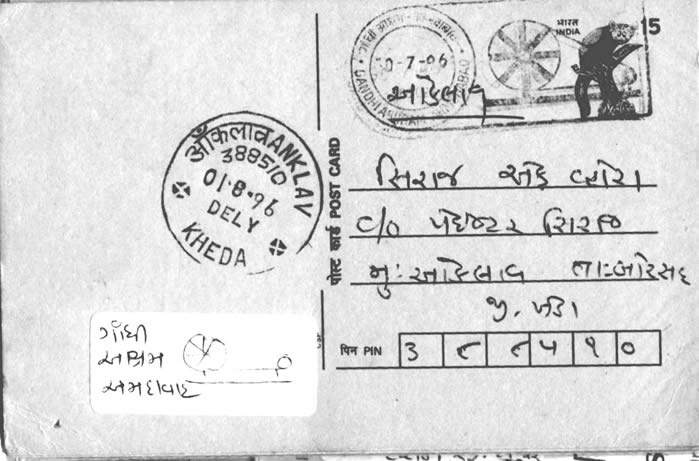 भारत
INDIA
15
गांधी आश्रम
0-7-96
GANDHI ASHRAM
આંકલાવ
आँकलाव ANKLAV
388510
01.8.96
DELY
KHEDA
पोस्ट कार्ड POST CARD
સિરાજ એફ વ્હોરા
C/O પેઇન્ટર સિરાજ
મુઃ આંકલાવ તાઃ બોરસદ
જી. ખેડા
पिन PIN ૩ ૮ ૮ ૫ ૧ ૦
ગાંધી
આશ્રમ
અમદાવાદ